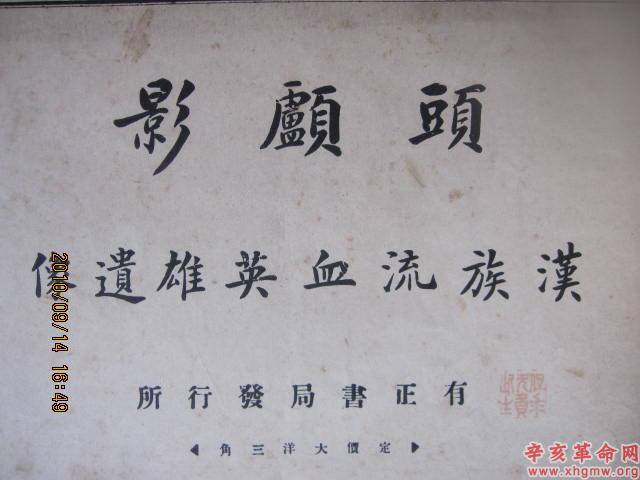 頭顱影
漢族流血英雄遺像
有正書局發行所
定價大洋三角
2010/09/14 16:49
辛亥革命网
www.xhgmw.org